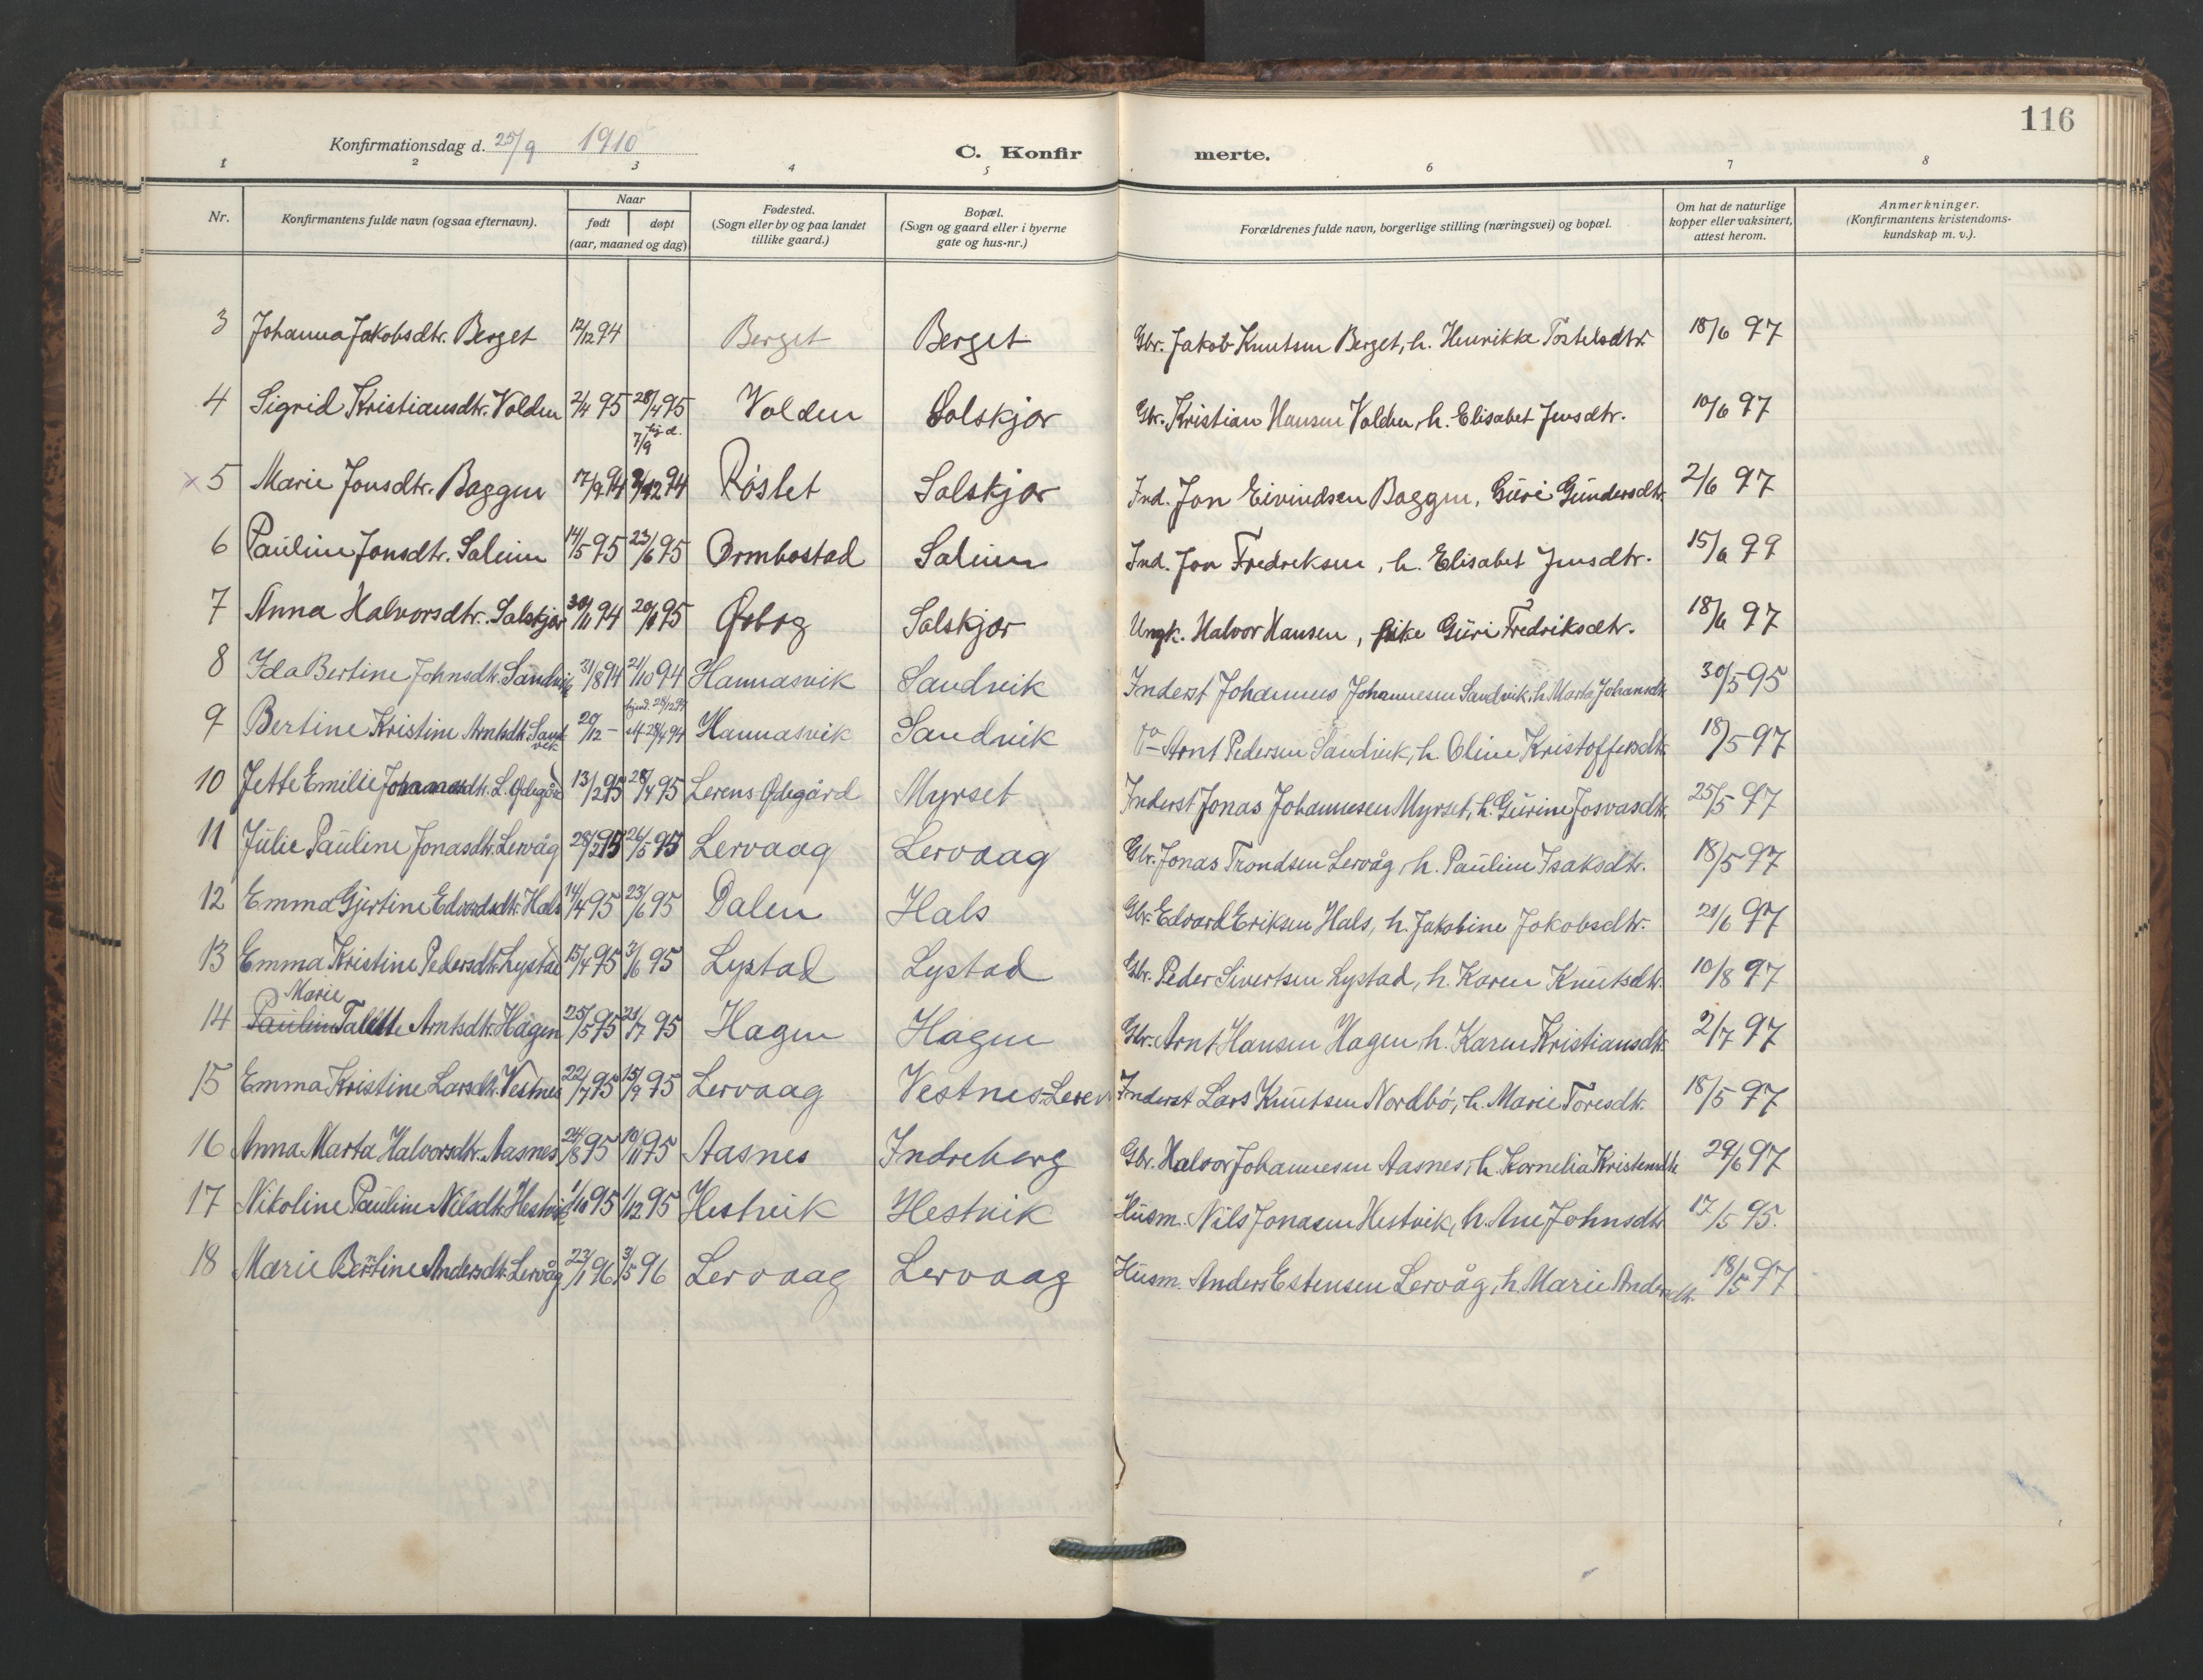 116
Konfirmationsdag d. 25/9 1910
C. Konfirmerte.
1 2 3 4 5 6 7 8
Nr.
Konfirmantens fulde navn (ogsaa efternavn).
Naar
født
døpt
(aar, maaned og dag)
Fødested.
(Sogn eller by og paa landet
tillike gaard.)
Bopæl.
(Sogn og gaard eller i byerne
gate og hus-nr.)
Forældrenes fulde navn, borgerlige stilling (næringsvei) og bopæl.
Om hat de naturlige
kopper eller vaksinert,
attest herom.
Anmerkninger.
(Konfirmantens kristendoms-
kundskap m. v.).
3 Johanna Jakobsdtr. Berget 12/12 94 Berget Berget Gbr. Jakob Knutsen Berget, h. Henrikke Tostelsdtr 18/6 97
4 Sigrid Kristiansdtr. Volden 2/4 95 28/4 95 Volden Solskjør Gbr. Kristian Hansen Volden, h. Elisabet Jensdtr. 10/6 97
hj.d. 7/9
x 5 Marie Jonsdtr. Baggen 17/9 94 2/12 94 Røslet Solskjør Ind. Jon Eivindsen Baggen, Guri Gundersdtr. 2/6 97
6 Pauline Jonsdtr. Saleim 14/5 95 23/6 95 Ormbostad Saleim Ind. Jon Fredreksen, h. Elisabet Jensdtr. 15/6 99
7 Anna Halvorsdtr. Solskjør 30/11 94 20/1 95 Ørbog Solskjør Ungk. Halvor Hansen, pike Guri Fredriksdtr. 18/6 97
8 Ida Bertine Johnsdtr. Sandvik 31/8 94 21/10 94 Hannasvik Sandvik Inderst Johannes Johannesen Sandvik, h. Marta Johansdtr 30/5 95
9 Bertine Kristine Arntsdtr. Sandvik 20/12 - 28/4 94 Hannasvik Sandvik Do Arnt Pedersen Sandvik, h. Oline Kristoffersdtr 18/5 97
10 Jette Emilie Jonasdtr. L. Ødegård 13/2 95 28/4 95 Lerens Ødegård Myrset Inderst Jonas Johannesen Myrset, h. Gurine Josvasdtr. 25/5 97
11 Julie Pauline Jonasdtr. Lervåg 28/2 95 26/5 95 Lervaag Lervaag Gbr. Jonas Trondsen Lervåg, h. Pauline Isaksdtr. 18/5 97
12 Emma Gjertine Edvardsdtr. Hals 14/4 95 23/6 95 Dalen Hals Gbr. Edvard Eriksen Hals, h. Jakobine Jakobsdtr. 21/6 97
13 Emma Kristine Pedersdtr. Lystad 15/4 95 3/6 95 Lystad Lystad Gbr. Peder Sivertsen Lystad, h. Karen Knutsdtr. 10/8 97
Marie
14 Pauline Talette Arntsdtr. Hagen 25/5 95 21/7 95 Hagen Hagen Gbr. Arnt Hansen Hagen, h. Karen Kristiansdtr. 2/7 97
15 Emma Kristine Larsdtr. Vestnes 22/7 95 15/9 95 Lervaag Vestnes-Leren Inderst Lars Knutsen Nordbø, h. Marie Toresdtr. 18/5 97
16 Anna Marta Halvorsdtr. Aasnes 24/8 95 10/11 95 Aasnes Indreberg Gbr. Halvor Johannesen Aasnes, h. Kornelia Kristensdtr 29/6 97
17 Nikoline Pauline Nilsdtr. Hestvik 1/10 95 1/12 95 Hestvik Hestvik Husm. Nils Jonasen Hestvik, h. Ane Johnsdtr 17/5 95.
18 Marie Berntine Andersdtr. Lervåg 23/1 96 3/5 96 Lervaag Lervaag Husm. Anders Estensen Lervåg, h. Marie Andersdtr. 18/5 97